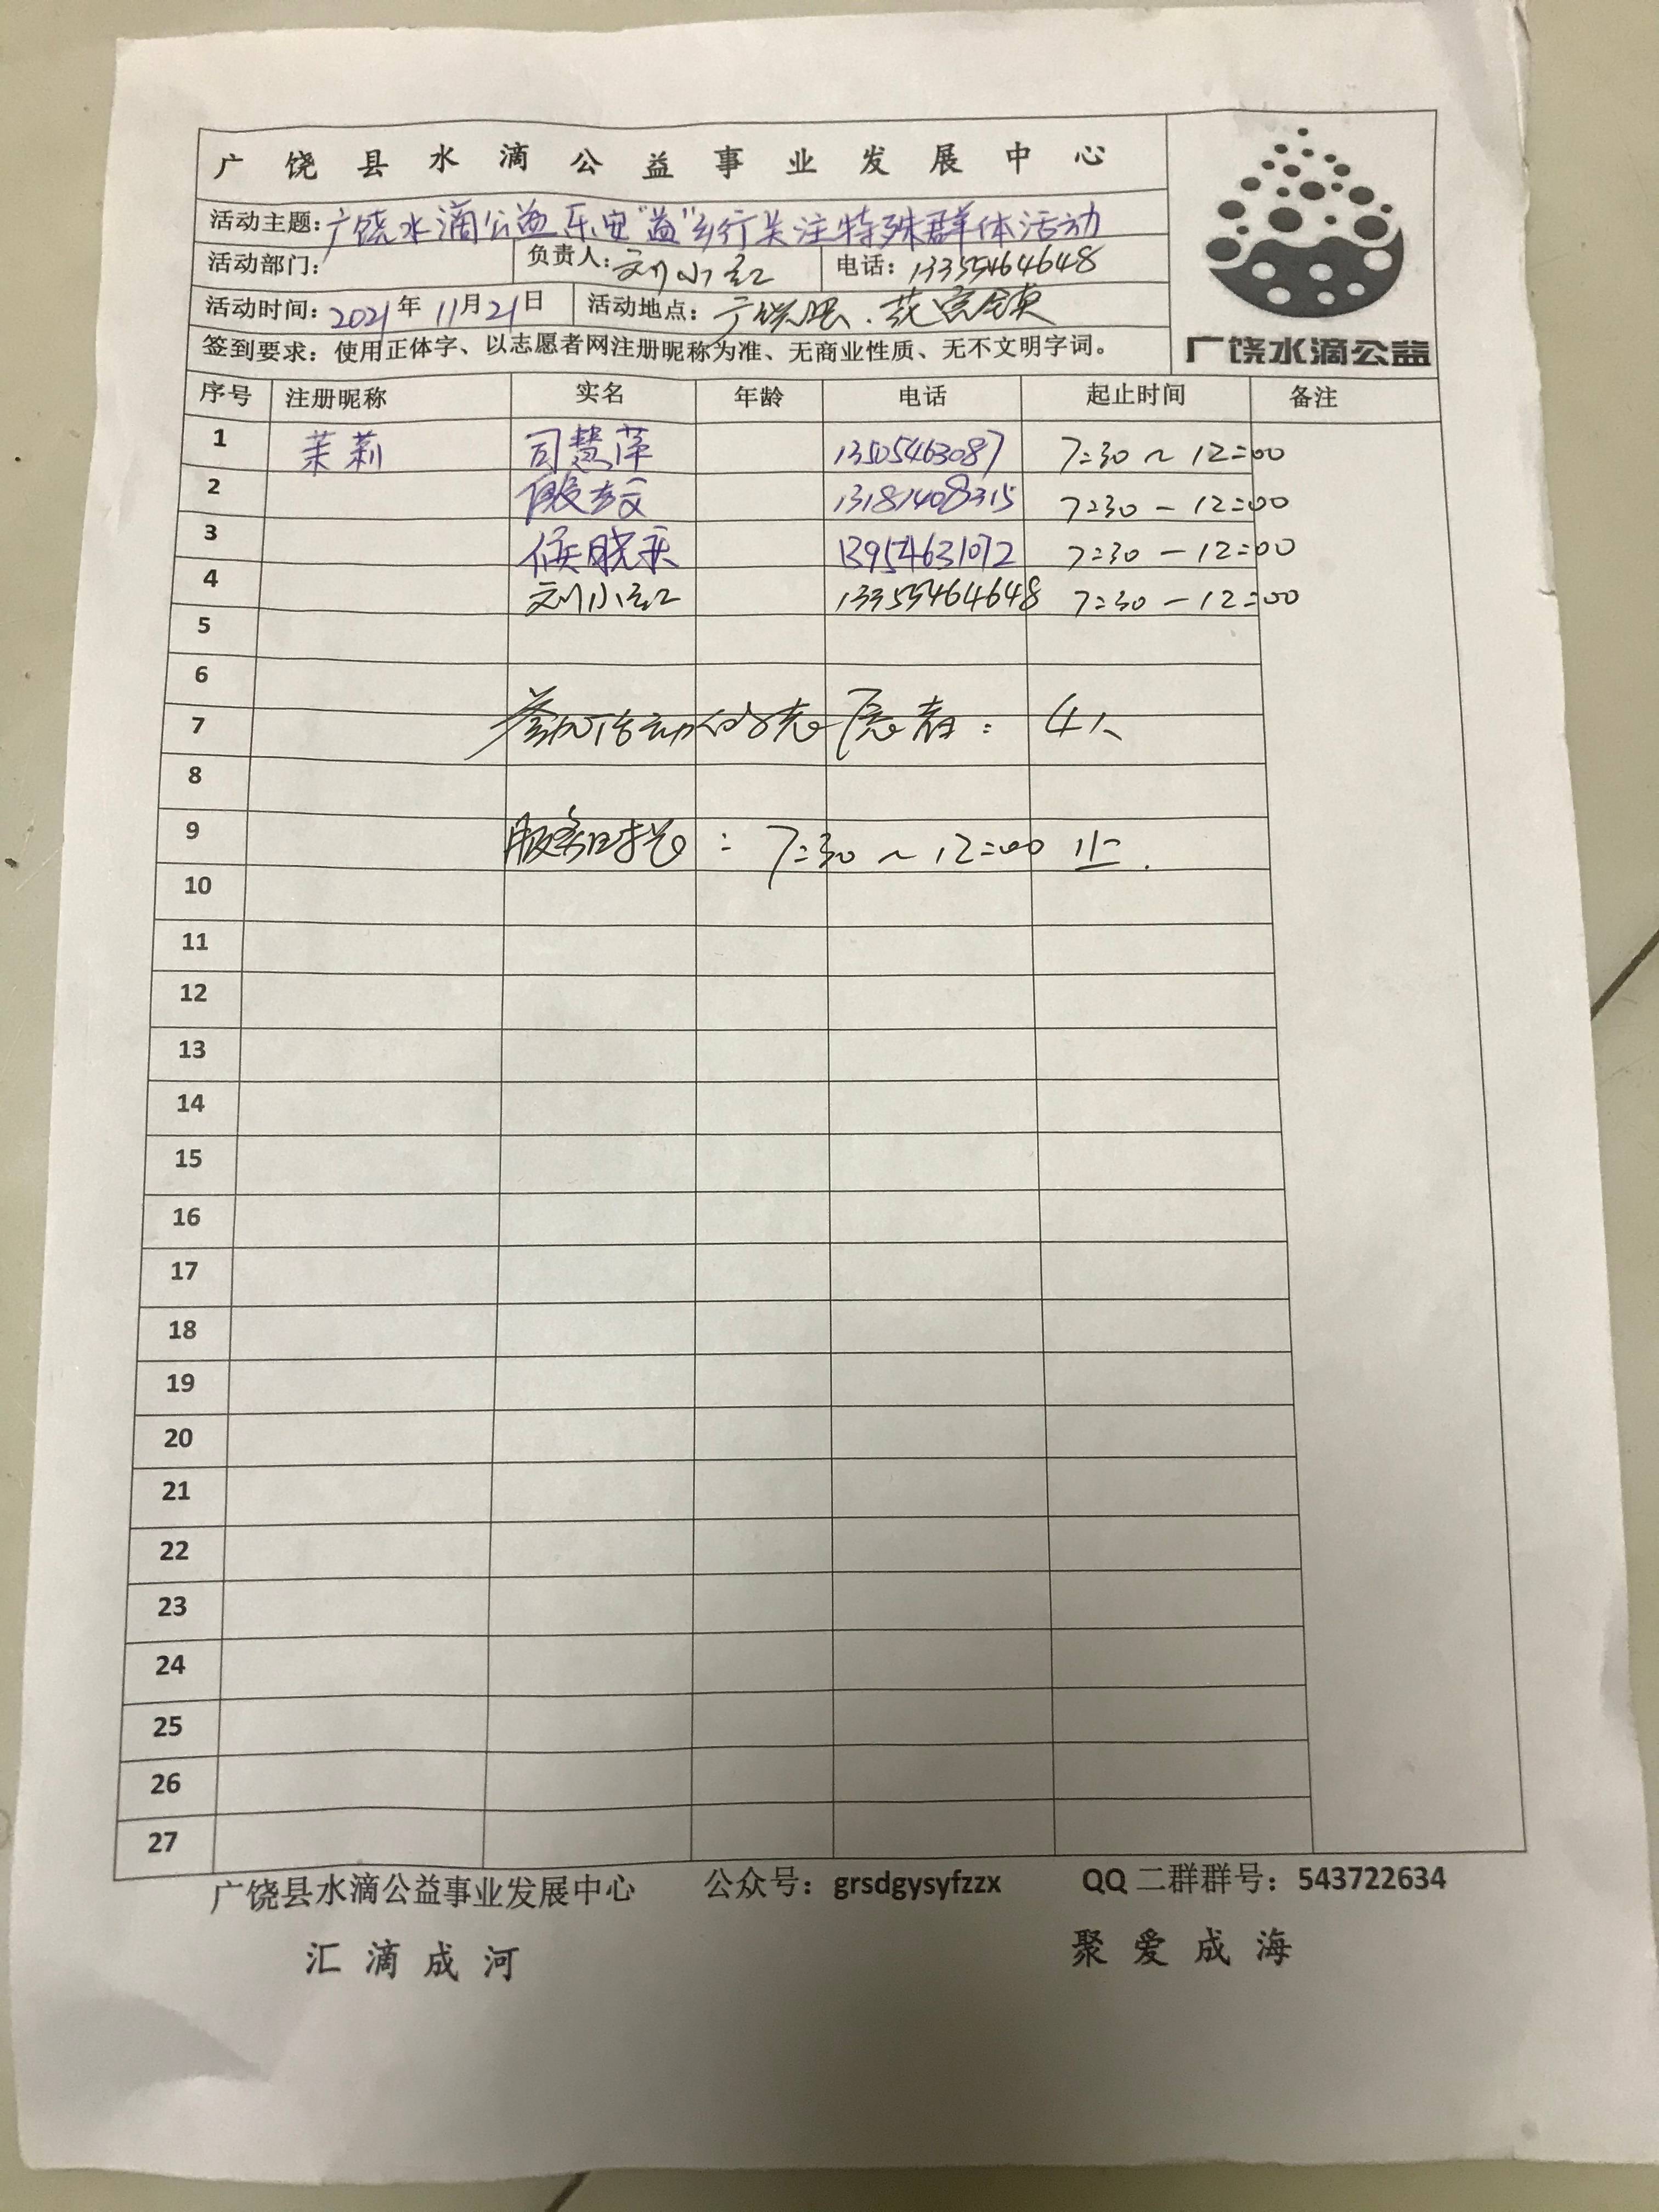 广饶县水滴公益事业发展中心
活动主题：广饶水滴公益乐安"益"乡行关注特殊群体活动
活动部门： 负责人：刘小红 电话：13355464648
活动时间：2021年11月21日 活动地点：广饶县.花官镇
签到要求：使用正体字、以志愿者网注册昵称为准、无商业性质、无不文明字词。
广饶水滴公益
序号 注册昵称 实名 年龄 电话 起止时间 备注
1 茉莉 司慧萍 13505463087 7:30~12:00
2 13181408315 7:30-12:00
3 侯晓 13954631072 7:30-12:00
4 刘小红 13355464648 7:30-12:00
5
6
7 参加活动的志愿者：4人
8
9 服务时长：7:30~12:00止.
10
11
12
13
14
15
16
17
18
19
20
21
22
23
24
25
26
27
广饶县水滴公益事业发展中心 公众号：grsdgysyfzzx QQ二群群号：543722634
汇滴成河 聚爱成海